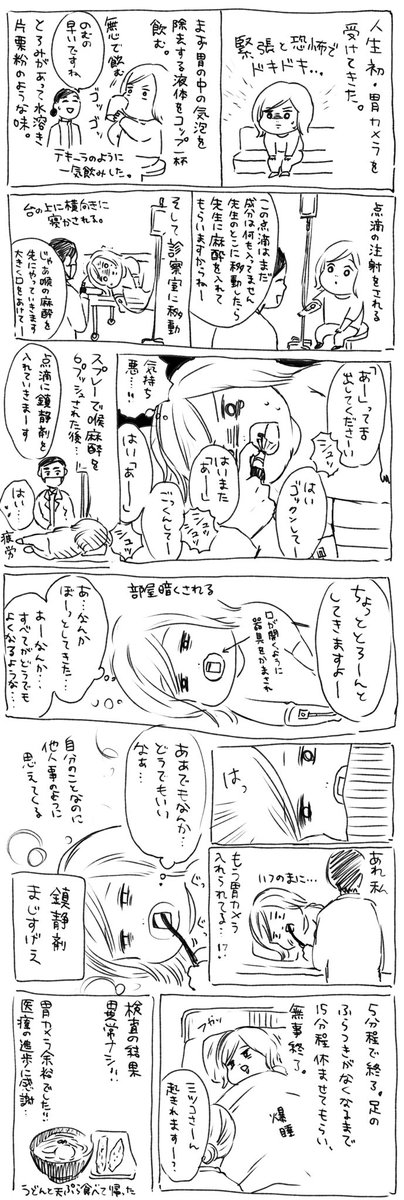 人生初・胃カメラを
受けてきた。
緊張と恐怖で
ドキドキ…
まず胃の中の気泡を
除去する液体をコップ一杯
飲む。
無心で飲む
ゴッ
ゴッ
のむの
早いですね
テキーラのように
一気飲みした。
とろみがあって水溶き
片栗粉のような味。
点滴の注射をされる
この点滴はまだ
成分は何も入ってません
先生のとこに移動したら
先生に麻酔を入れて
もらいますからねー
そして診察室に移動
台の上に横向きに
寝かされる。
じゃあ喉の麻酔を
先にやっていきます
大きく口をあけてー
「あー」って舌
出してくださいー
シュッ
シュッ
はい
ゴックンしてー
はいまた
あー
ごっくんしてー
シュッ
シュッ
はい「あー」
気持ち
悪…!!
スプレーで喉麻酔を
6プッシュされた後…
点滴に鎮静剤を
入れていきまーす
はい…
疲労
ちょっととろーんと
してきますよー
部屋暗くされる
口が開くように
器具をかまされ
あ…なんか
ぼーっとしてきた…
あーなんか…
すべてがどうでも
よくなるような…
はっ
あれ私
いつのまに…
もう胃カメラ
入れられてる…!?
ああでもなんか…
どうでもいい
なぁ…
自分のことなのに
他人事のように
思えてくる
鎮静剤
まじすげえ
5分程で終了。足の
ふらつきがなくなるまで
15分程休ませてもらい、
無事終了。
爆睡
ミツコさーん
起きれますー?
検査の結果
異常ナシ!!
胃カメラ余裕でした!!
医療の進歩に感謝…
うどんと天ぷら食べて帰った